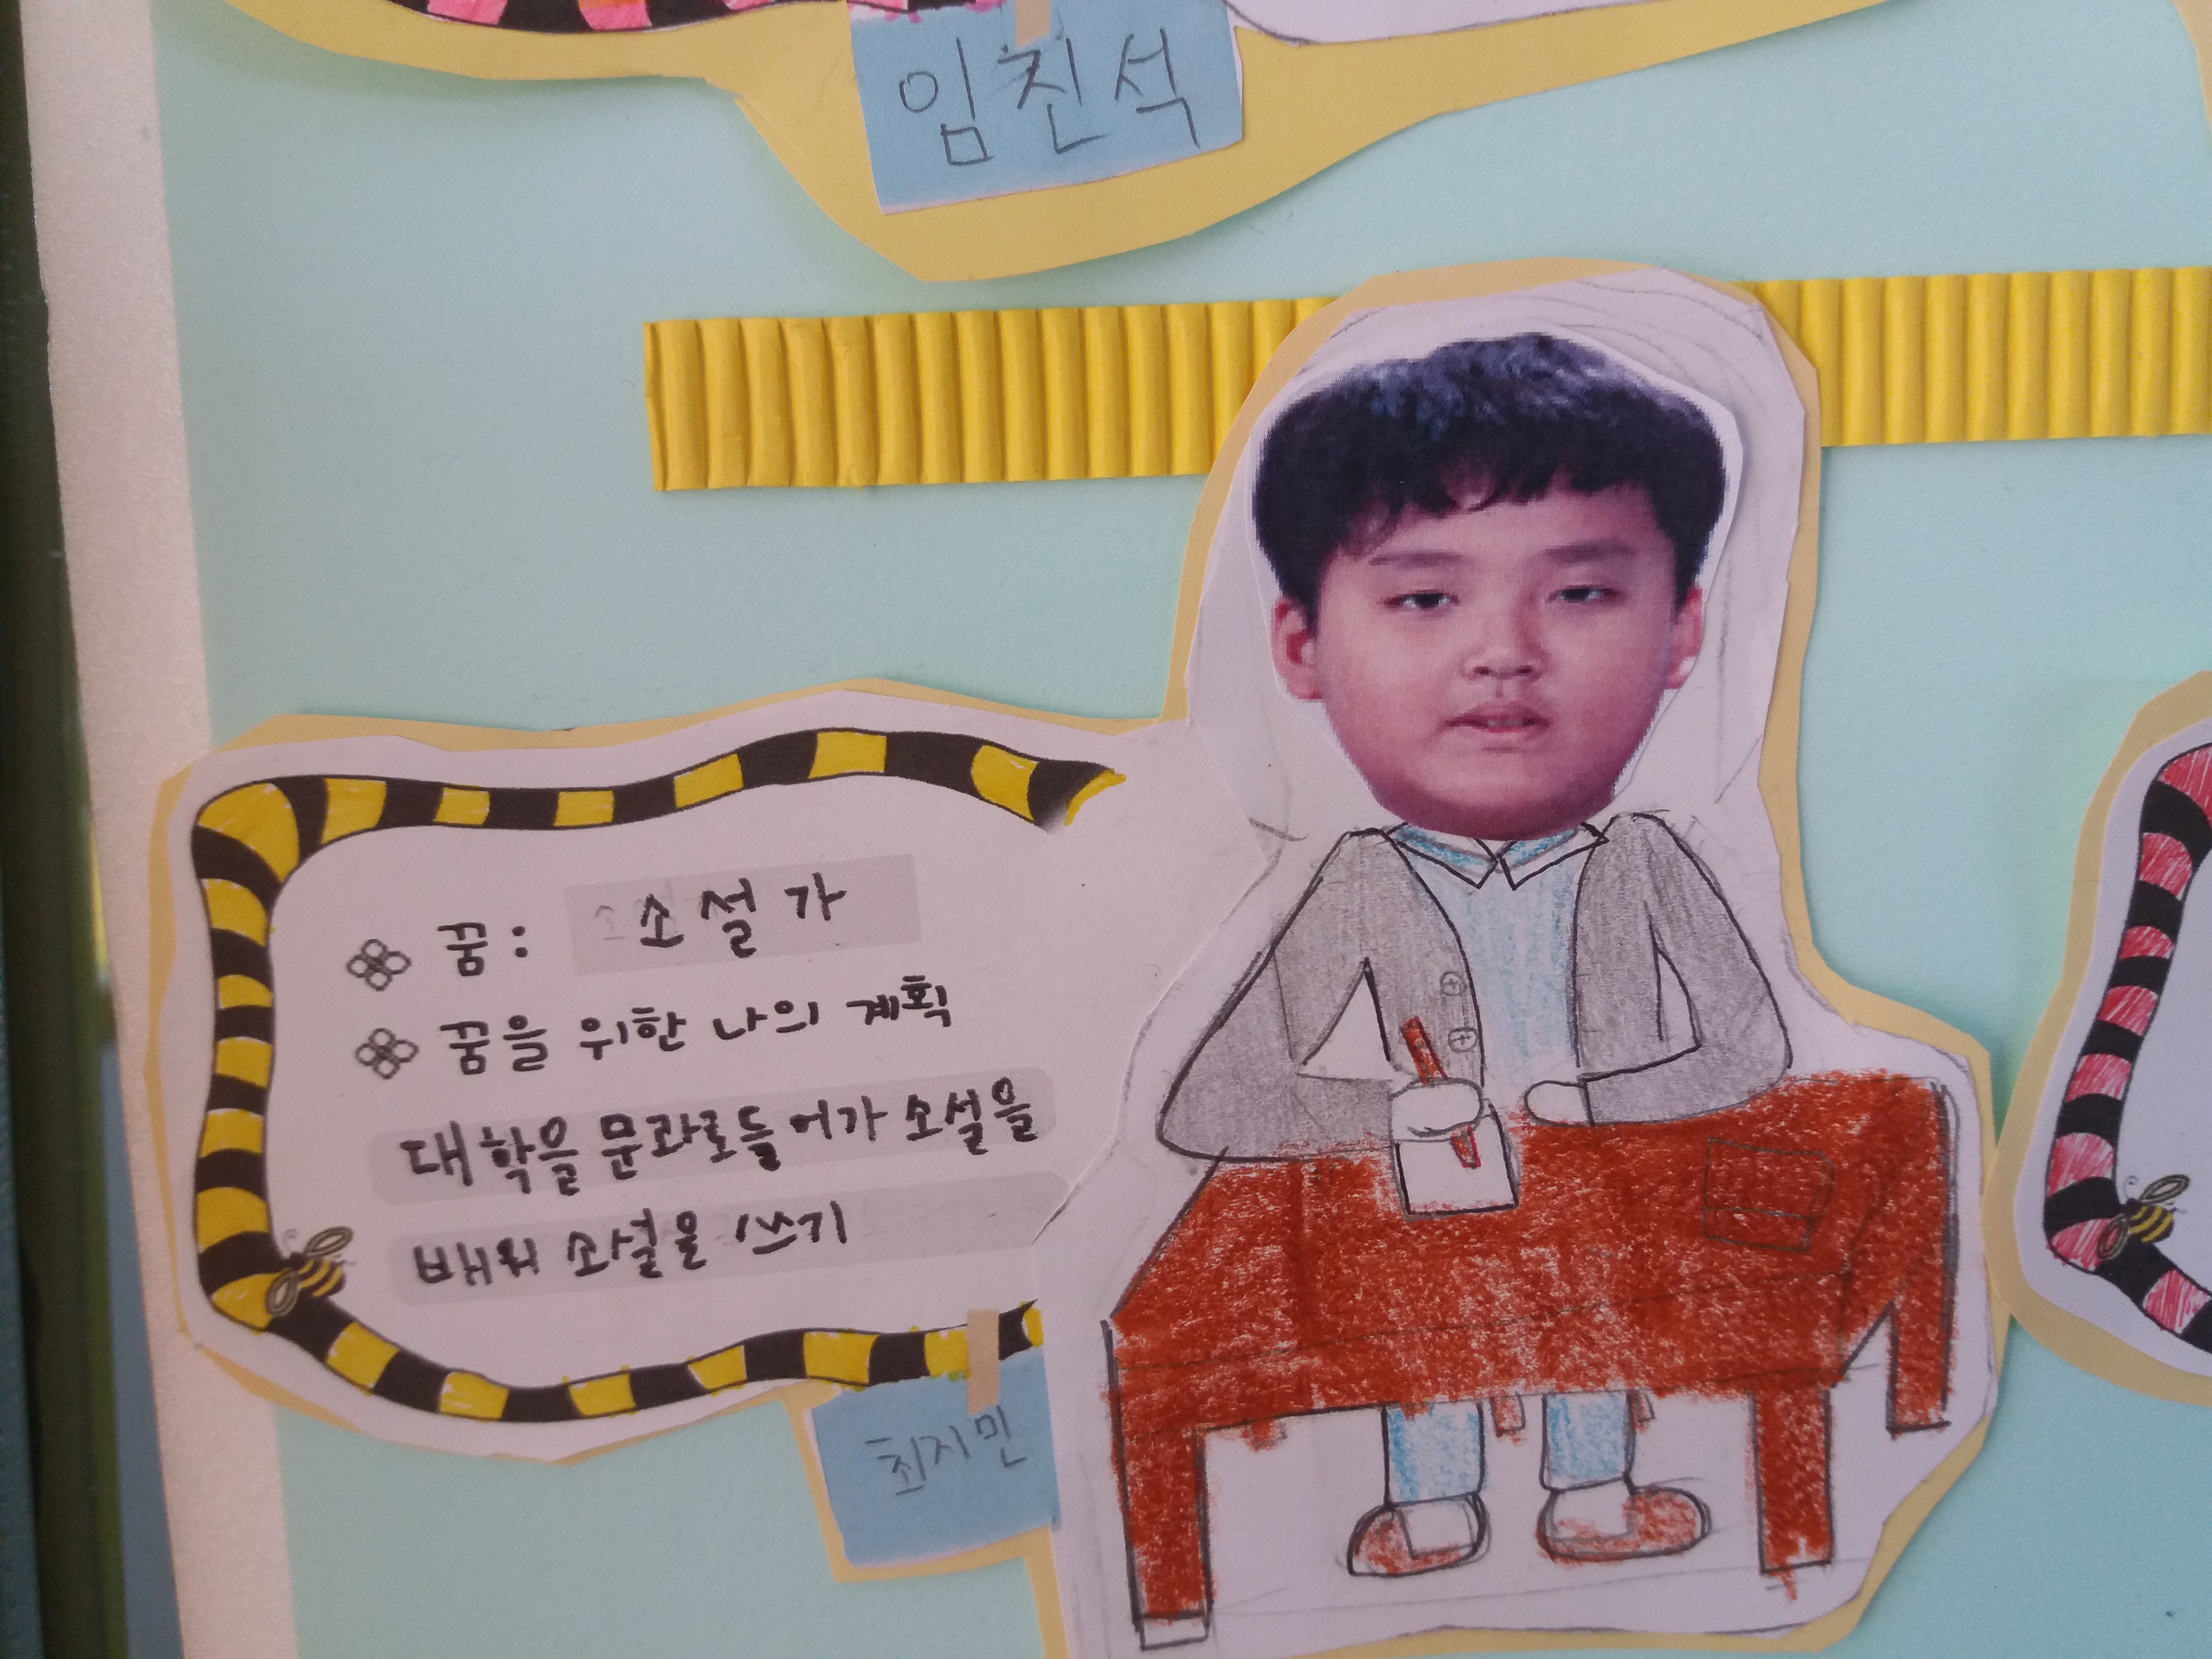 임진석
꿈: 소설가
꿈을 위한 나의 계획
대학을 문과로들어가 소설을
배워 소설을 쓰기
최지민